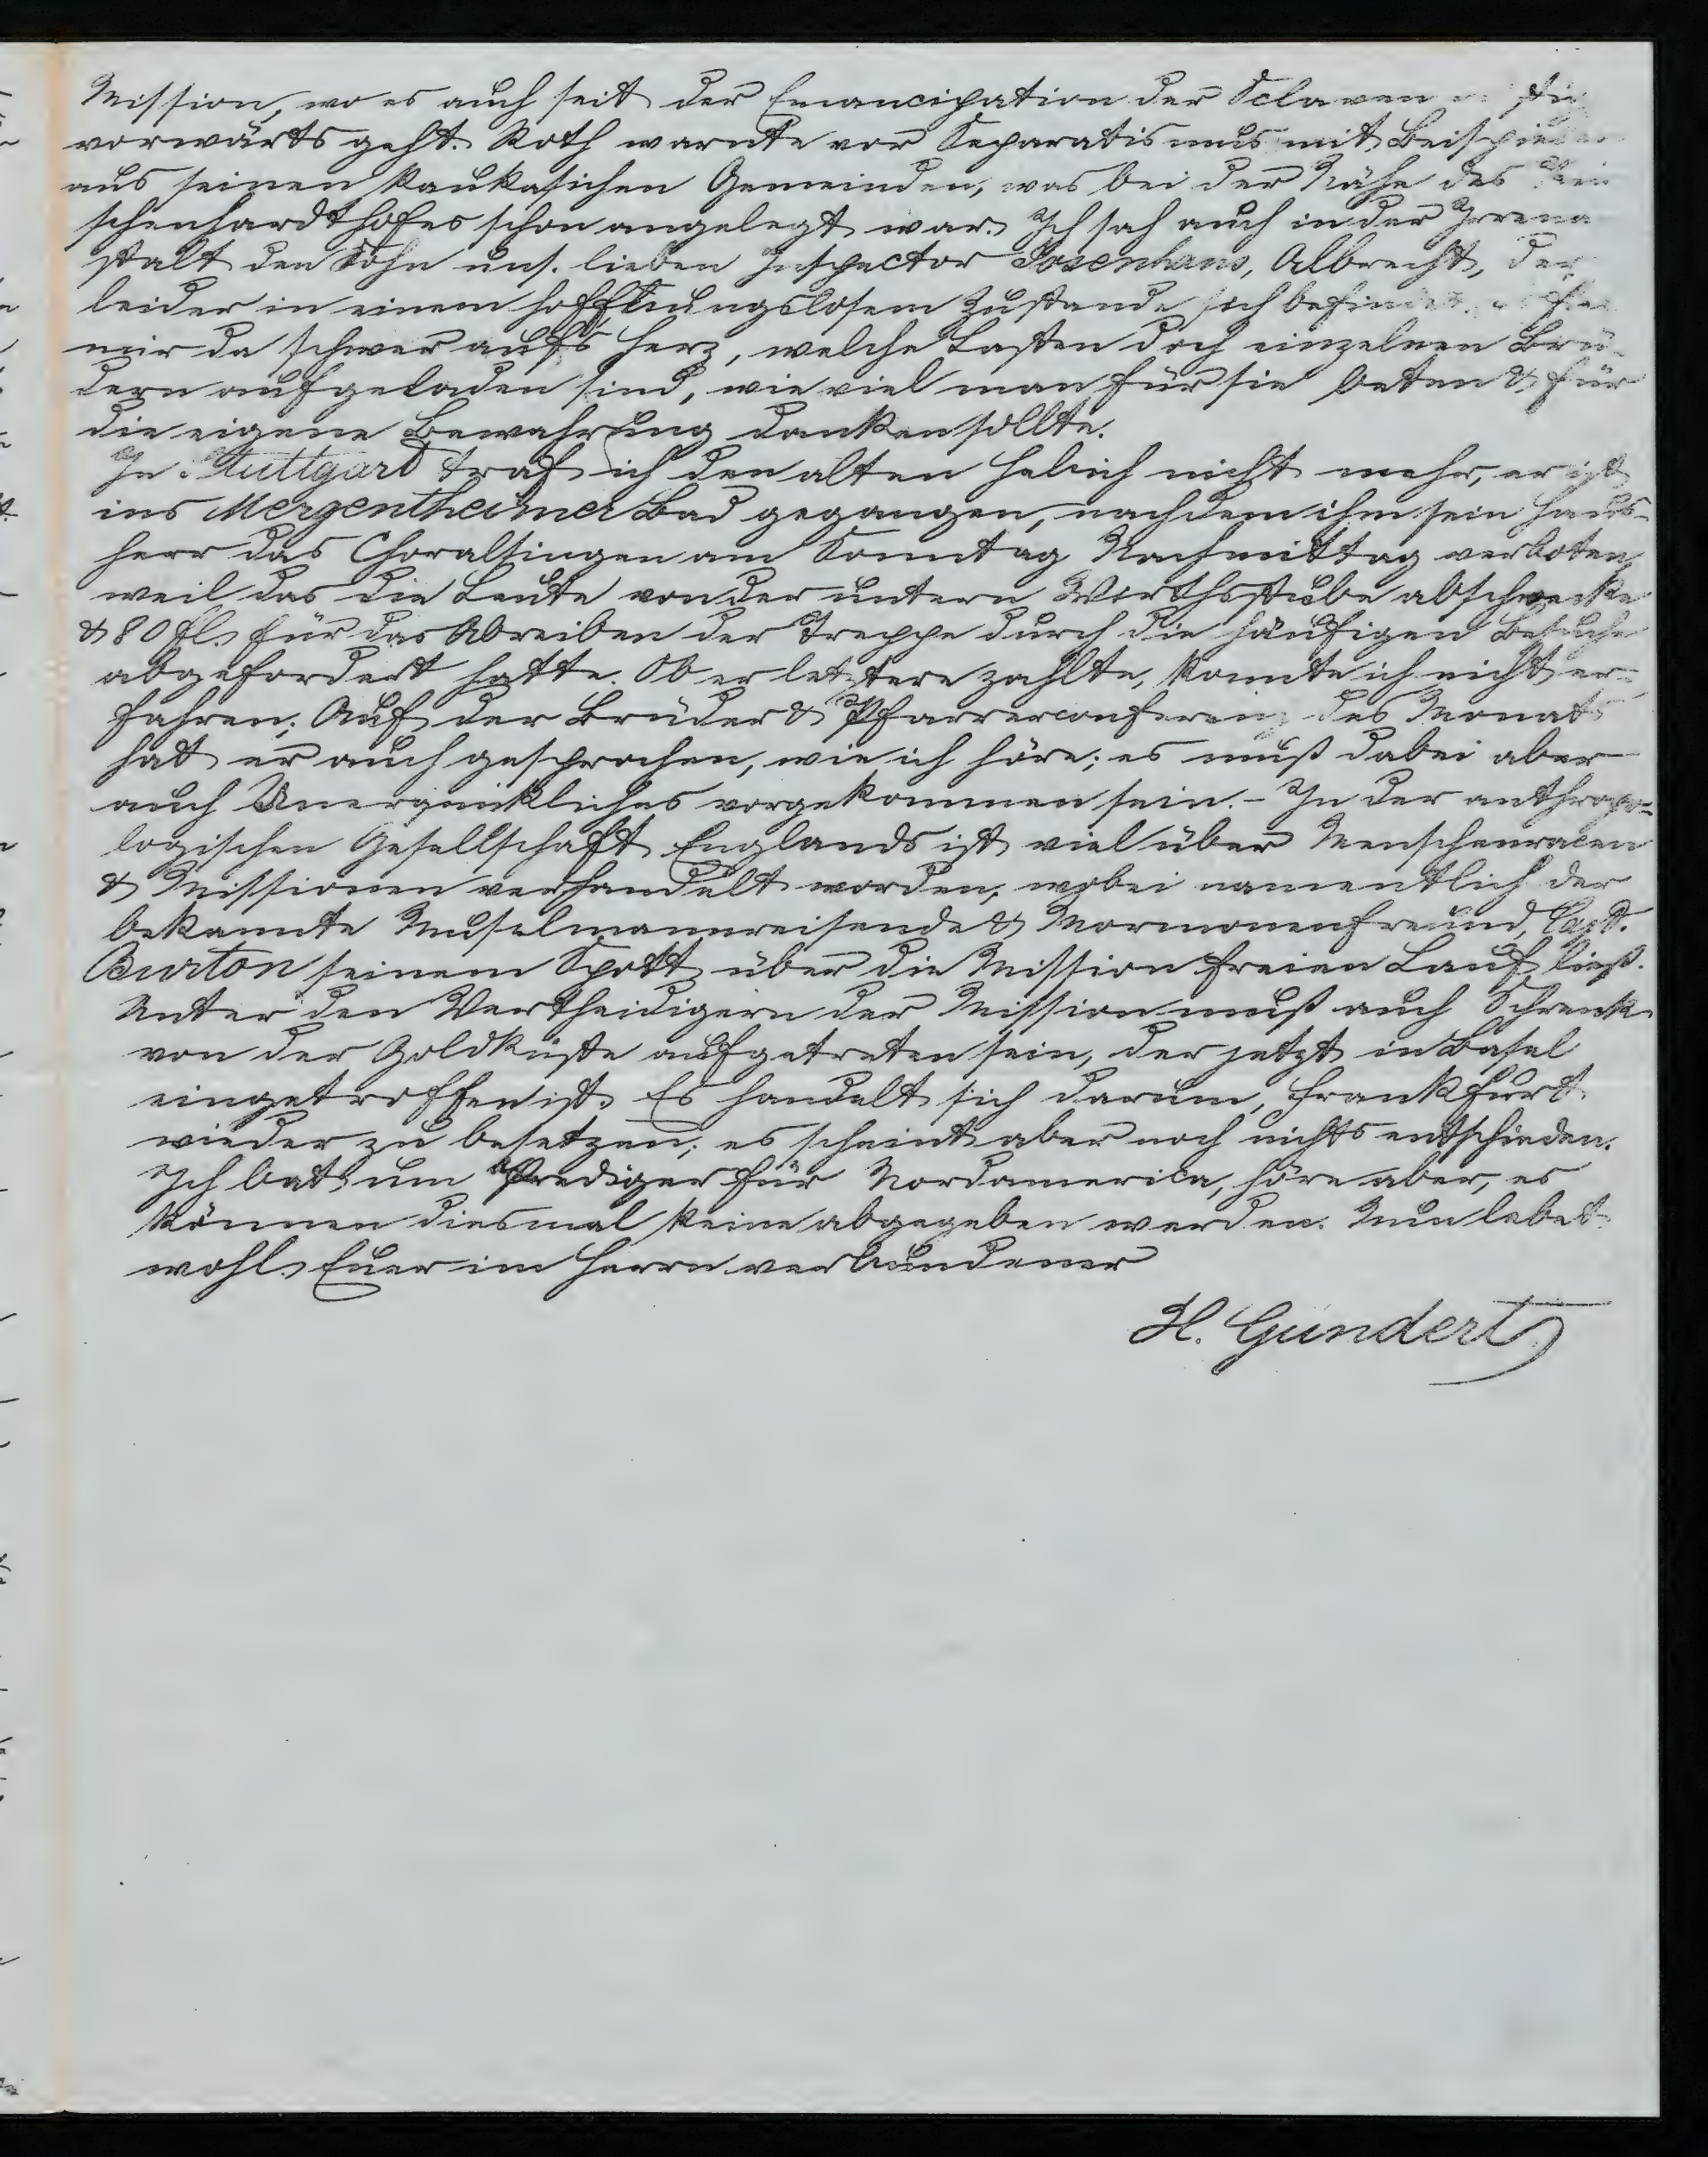 Mission, wo es auch seit der Emancipation der Sclaven
vorwärts geht. Roth warnte vor Separatismus mit Beispielen
aus seinen kaukasichen Gemeinden, was bei der Nähe des
schenhardthofes schon angelegt war. Ich sah auch in der Irrena
stalt den Sohn uns. lieben Inspector Josenhans, Albrecht, der
leider in einem hoffnungslosem Zustande sich befindet. es fiel
mir da schwer aufs Herz, welche Lasten doch einzelnen Brü-
dern aufgeladen sind, wie viel man für sie beten & für
die eigene Bewahrung danken sollte.
In Stuttgard traf ich den alten Hebich nicht mehr, er ist
ins Mergentheimer Bad gegangen, nachdem ihm sein Haus-
herr das Choralsingen am Sonntag Nachmittag verboten,
weil das die Leute von der untern Wirthsstube abschrecke
& 80 fl. für das Abreiben der Treppe durch die häufigen Besuche
abgefordert hatte. Ob er letztere zahlte, konnte ich nicht er-
fahren; Auf der Brüder & Pfarrerconferenz des Monats
hat er auch gesprochen, wie ich höre; es muß dabei aber
auch Unerquickliches vorgekommen sein. - In der anthropo-
logischen Gesellschaft Englands ist viel über Menschenracen
& Missionen verhandelt worden, wobei namentlich der
bekannte Muselmannreisende & Mormonenfreund, Capt.
Burton seinem Spott über die Mission freien Lauf ließ.
Unter den Vertheidigern der Mission muß auch Schrenk
von der Goldküste aufgetreten sein, der jetzt in Basel
eingetroffen ist. Es handelt sich darum, Frankfurt
wieder zu besetzen; es scheint aber noch nichts entschieden.
Ich bat um Prediger für Nordamerica, höre aber, es
können diesmal keine abgegeben werden. Nun lebet
wohl. Euer im Herrn verbundener
H. Gundert